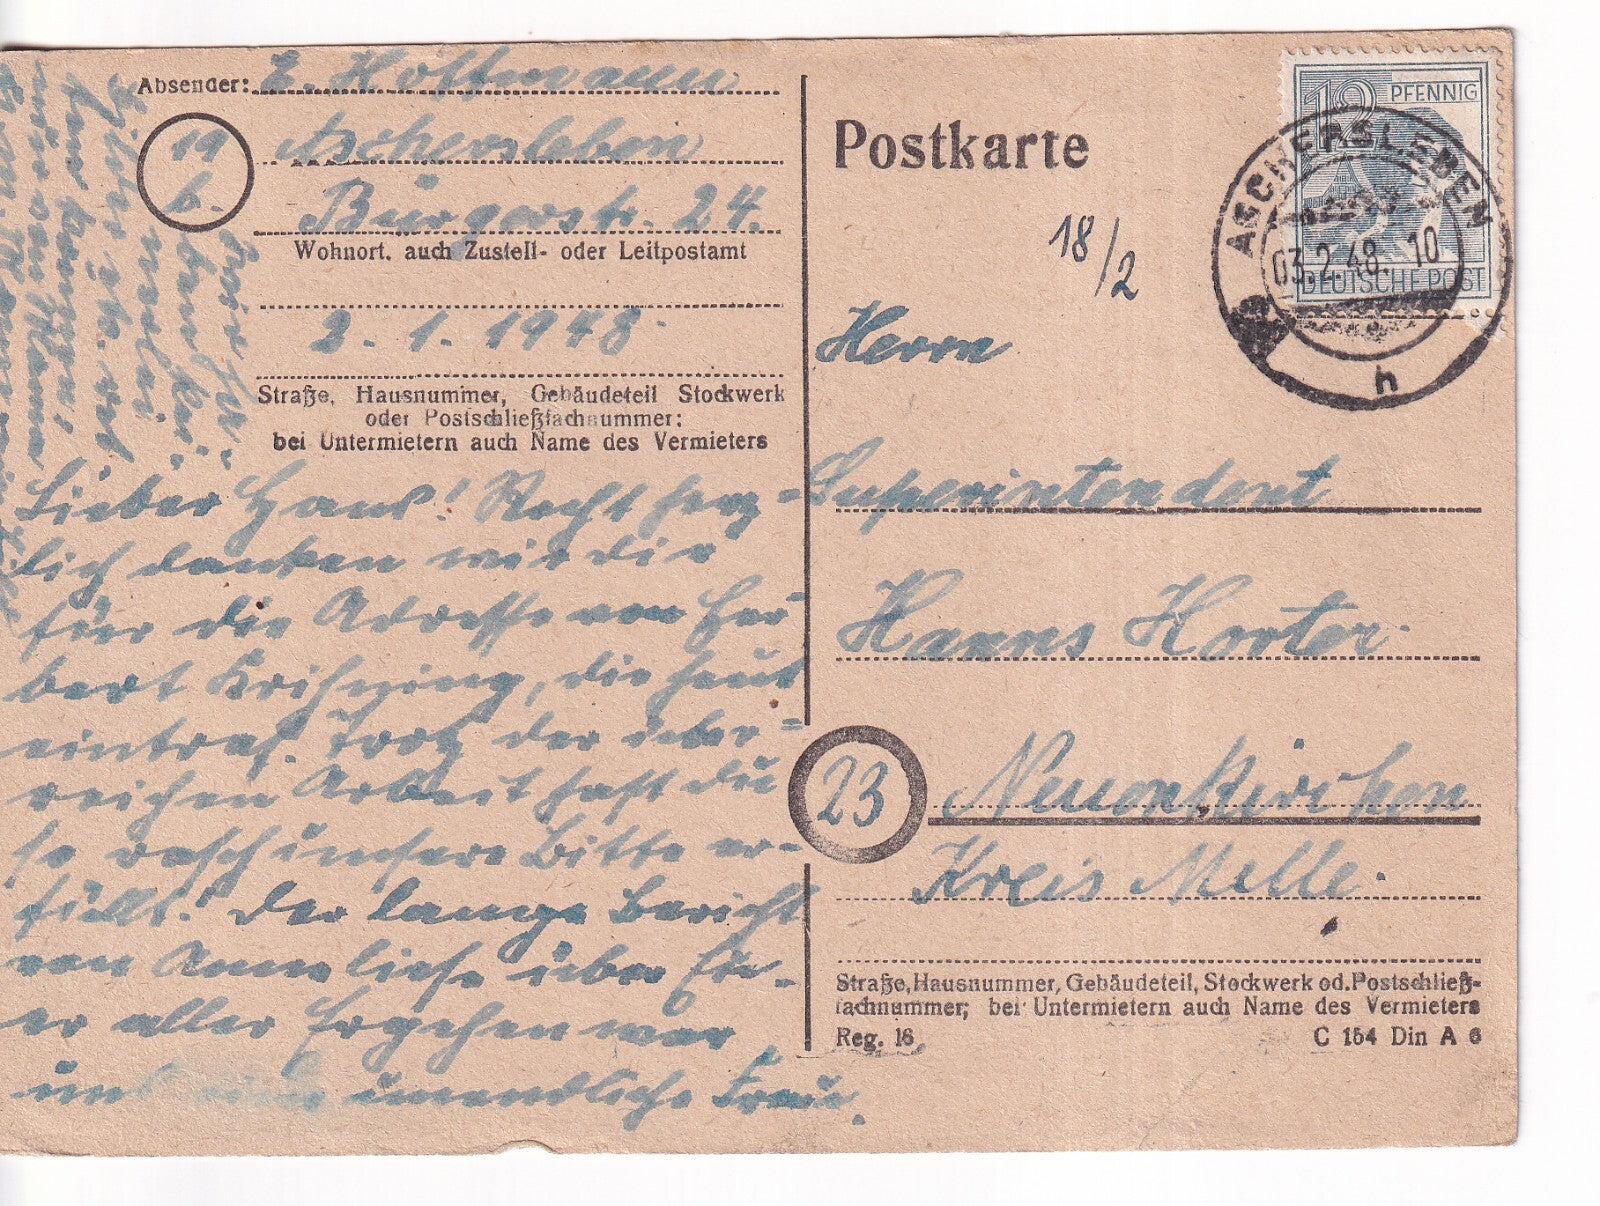 Absender: E. Hoffmann
19
b.
Aschersleben
Burgerstr. 24.
Wohnort, auch Zustell- oder Leitpostamt
2. 1. 1948.
Straße, Hausnummer, Gebäudeteil Stockwerk
oder Postschließfachnummer;
bei Untermietern auch Name des Vermieters
Lieber Hans! Recht herz-
lich danken wir dir
für die Adresse von Her
bert Krishning, die heut
eintraf. Trotz der über-
reichen Arbeit hast du
so rasch unsere Bitte er-
füllt. Der lange Bericht
von Anneliese über Eu-
er aller Ergehen war
uns eine unendliche Freu.
Postkarte
18/2
12 PFENNIG
DEUTSCHE POST
ASCHERSLEBEN
03.2.48. 10
h
Herrn
Superintendent
Hanns Horter.
23 Neuenkirchen
Kreis Melle.
Straße, Hausnummer, Gebäudeteil, Stockwerk od. Postschließ-
fachnummer; bei Untermietern auch Name des Vermieters
Reg. 16 C 154 Din A 6